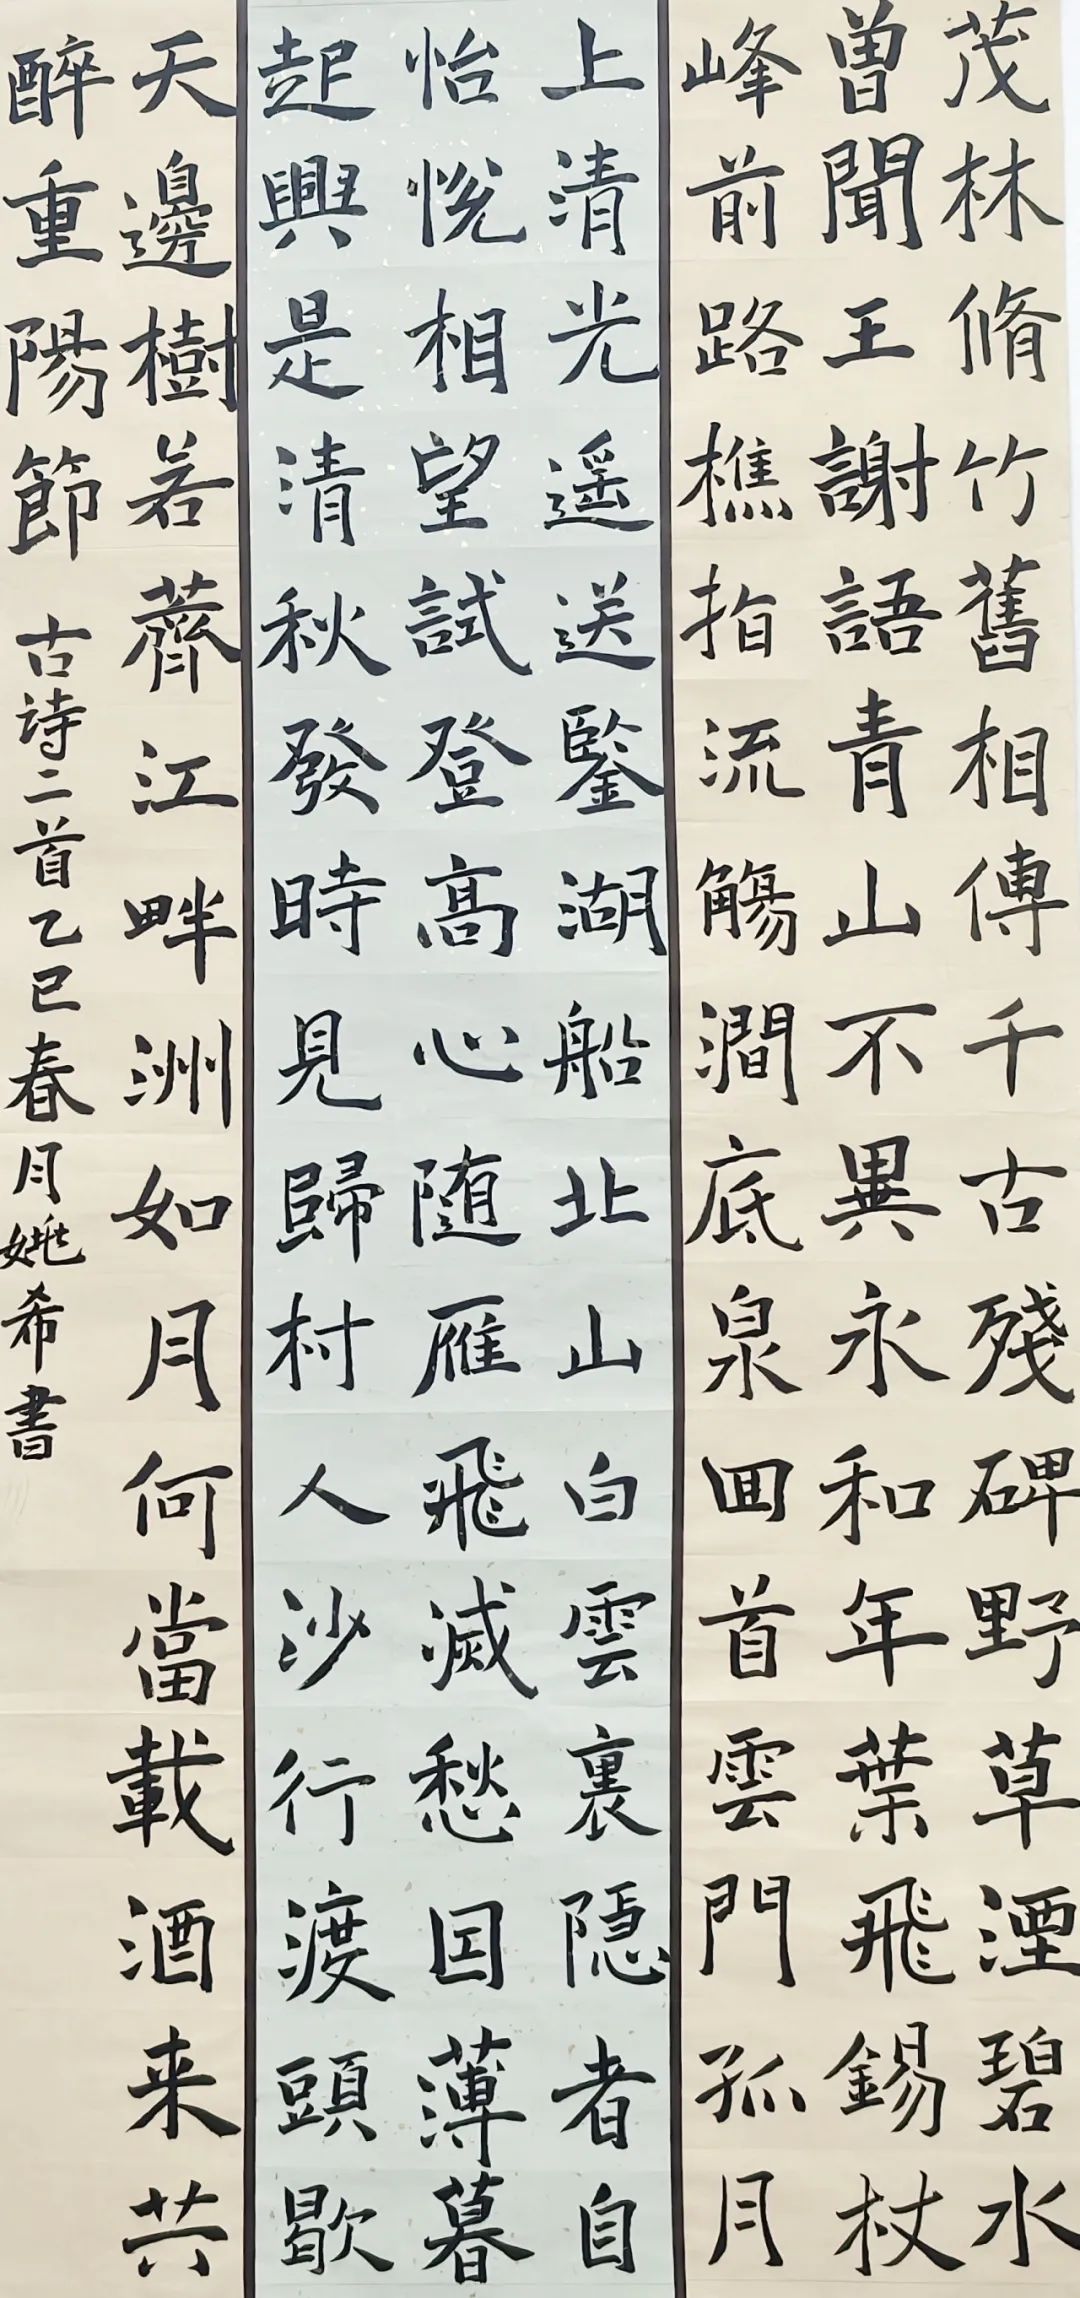 茂林脩竹舊相傳千古殘碑野草湮碧水
曾聞王謝語青山不異永和年葉飛錫杖
峰前路樵指流觴澗底泉回首雲門孤月
上清光遥送鑒湖船北山白雲裏隐者自
怡悦相望試登高心随雁飛滅愁因薄暮
起興是清秋發時見歸村人沙行渡頭歇
天邊樹若薺江畔洲如月何當載酒来共
醉重陽節 古诗二首乙巳春月姚希書